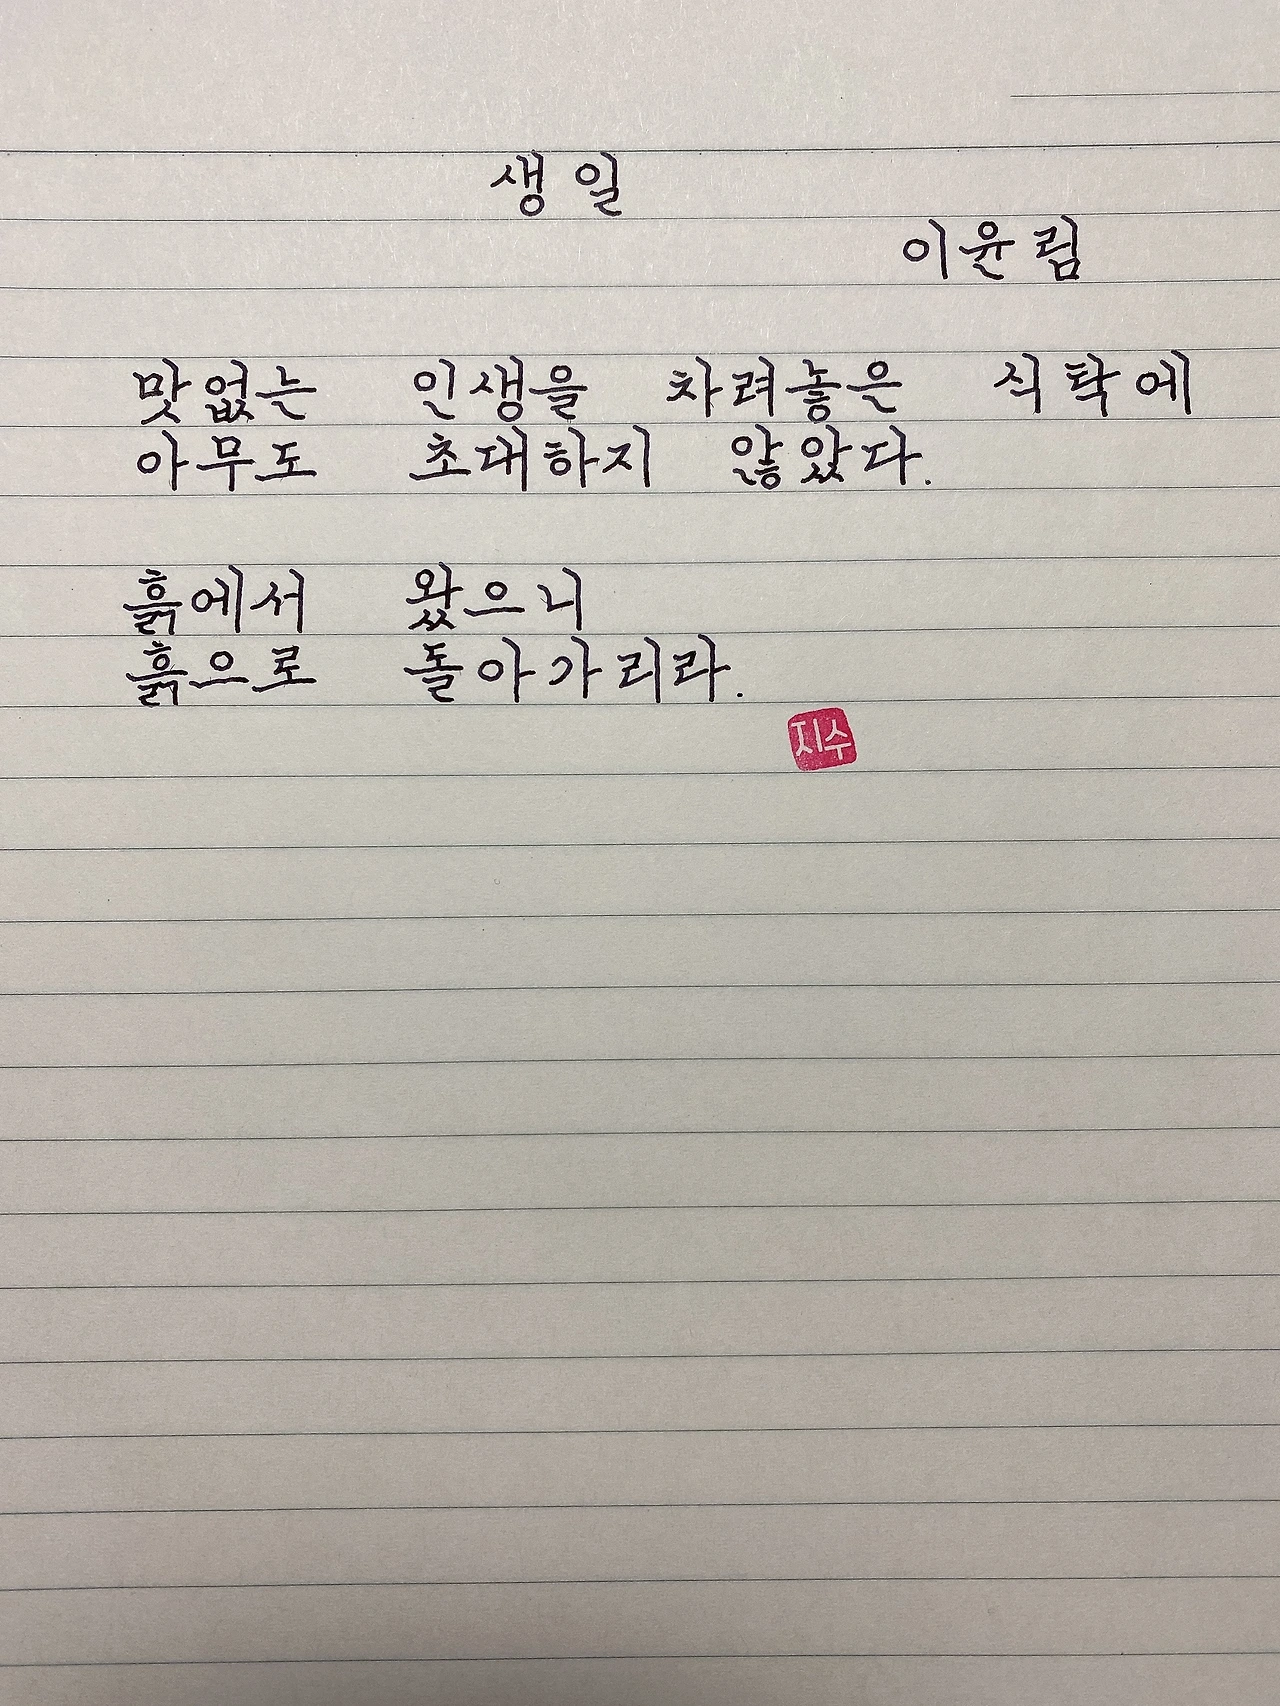 생일
이윤림
맛없는 인생을 차려놓은 식탁에
아무도 초대하지 않았다.
흙에서 왔으니
흙으로 돌아가리라.
지수